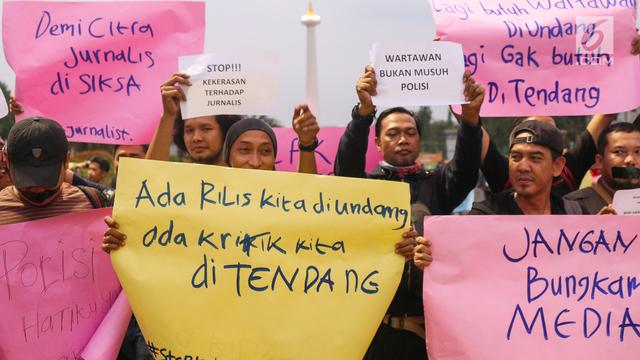 Demi Citra
Jurnalis
di SIKSA
Journalist.
STOP!!!
KEKERASAN
TERHADAP
JURNALIS
WARTAWAN
BUKAN MUSUH
POLISI
Lagi butuh Wartawan
DiUndang
Lagi Gak butuh
DiTendang
Ada RiLis kita diundang
ada KRiTiK kita
di TENDANG
POLISI
HATIKU
JANGAN
Bungkam
MEDIA